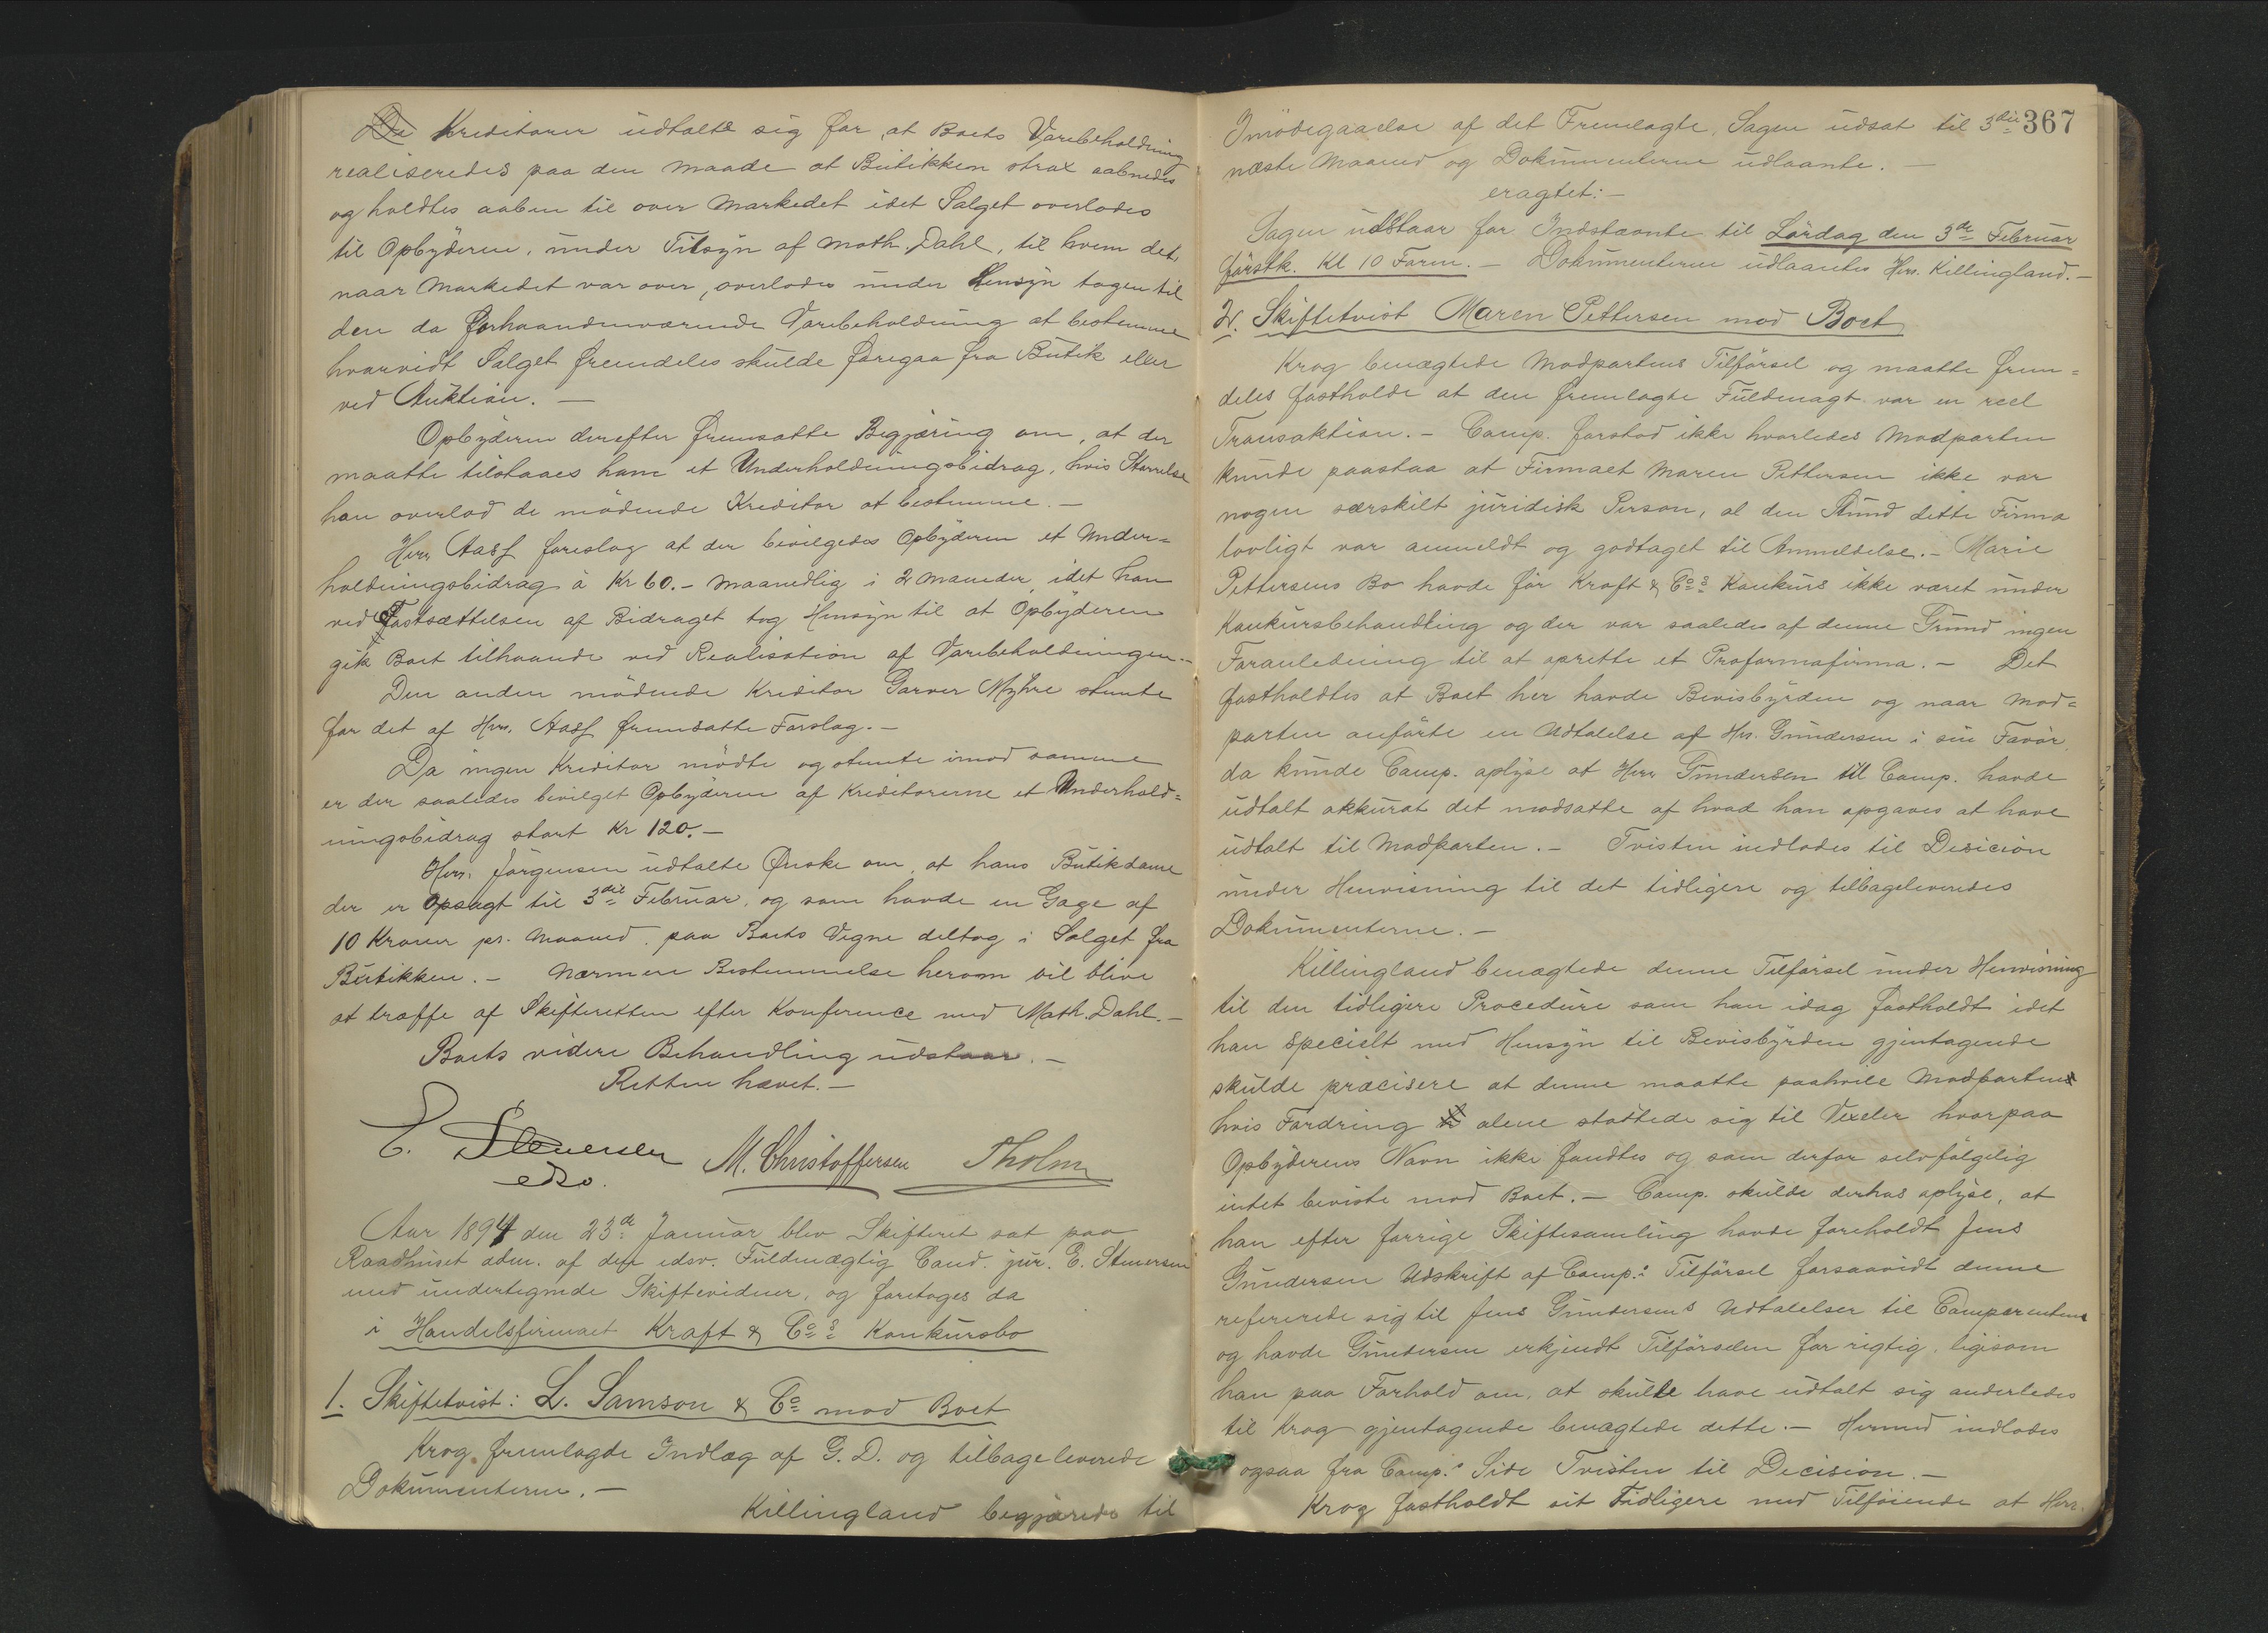 De Kreditorer udtalte sig for, at Boets Varebeholdning
realiseredes paa den Maade at Butikken strax aabnedes
og holdtes aaben til over Markedet idet Salget overlodes
til Opbyderen, under Tilsyn af Math. Dahl, til hvem det,
naar Markedet var over, overlodes under Hensyn tagen til
den da forhaandenværende Varebeholdning at bestemme
hvorvidt Salget fremdeles skulde foregaa fra Butik eller
ved Auktion. —
Opbyderen derefter fremsatte Begjæring om, at der
maatte tilstaaes ham et Underholdningsbidrag, hvis Størrelse
han overlod de mödende Kreditor at bestemme. —
Herr Aass foreslog at der bevilgedes Opbyderen et Under=
holdningsbidrag à Kr 60.- maanedlig i 2 maneder, idet han
ved Fastsættelsen af Bidraget tog Hensyn til at Opbyderen
gik Boet tilhaande ved Realisation af Varebeholdningen. -
Den anden mödende Kreditor Garver Myhre stemte
for det af Hrr. Aass fremsatte Forslag. -
Da ingen Kreditor mödte og stemte imod samme
er der saaledes bevilget Opbyderen af Kreditorerne et Underhold=
ningsbidrag stort Kr 120. -
Herr. Jörgensen udtalte Ønske om, at hans Butikdame
der er opsagt til 3die Februar, og som havde en Gage af
10 Kroner pr. Maaned, paa Boets Vegne deltog i Salget fra
Butikken. - Nærmere Bestemmelse herom vil blive
at træffe af Skifteretten efter Konference med Math. Dahl. -
Boets videre Behandling udstaar. -
Retten hævet. -
E. Stenersen M. Christoffersen Tholm
edsv.
Aar 1894 den 23de Januar blev Skifteret sat paa
Raadhuset adm. af den edsv. Fuldmægtig Cand. jur. E. Stenersen
med undertegnede Skiftevidner, og foretoges da
i Handelsfirmaet Kraft & Cos Konkursbo
1. Skiftetvist: L. Samson & Co mod Boet
Krog fremlagde Indlæg af G. D. og tilbageleverede
Dokumenterne. -
Killingland begjærede til
367
Imödegaaelse af det Fremlagte, Sagen udsat til 3die
næste Maaned og Dokumenterne udlaante. -
eragtet: -
Sagen udstaar for Indstævnte til Lördag den 3de Februar
förstk. Kl 10 Form. - Dokumenterne udlaantes Hrr. Killingland. -
2. Skiftetvist Maren Pettersen mod Boet
Krog benægtede Modpartens Tilförsel og maatte frem=
deles fastholde at den fremlagte Fuldmagt var en reel
Transaktion. - Comp. forstod ikke hvorledes Modparten
kunde paastaa at Firmaet Maren Pettersen ikke var
nogen særskilt juridisk Person, al den Stund dette Firma
lovligt var anmeldt og godtaget til Anmeldelse. - Marie
Pettersens Bo havde för Kraft & Cos Konkurs ikke været under
Konkursbehandling og der var saaledes af denne Grund ingen
Foranledning til at oprette et Proformafirma. - Det
fastholdtes at Boet her havde Bevisbyrden og naar Mod=
parten anförte en Udtalelse af Hr. Gundersen i sin Favör,
da kunde Comp. oplyse at Herr Gundersen til Comp. havde
udtalt akkurat det modsatte af hvad han opgaves at have
udtalt til Modparten. - Tvisten indlodes til Desicion
under Henvisning til det tidligere og tilbageleveredes
Dokumenterne. -
Killingland benægtede denne Tilförsel under Henvisning
til den tidligere Procedure som han idag fastholdt idet
han specielt med Hensyn til Bevisbyrden gjentagende
skulde præcisere at denne maatte paahvile Modparten
hvis Fordring alene støttede sig til Vexler hvorpaa
Opbyderens Navn ikke fandtes og som derfor selvfölgelig
intet beviste mod Boet. - Comp. skulde derhos oplyse, at
han efter forrige Skiftesamling havde foreholdt Jens
Gundersen Udskrift af Comp.s Tilförsel forsaavidt denne
refererede sig til Jens Gundersens Udtalelser til Comparenten
og havde Gundersen erkjendt Tilförselen for rigtig, ligesom
han paa Forhold om, at skulde have udtalt sig anderledes
til Krog gjentagende benægtede dette. - Hermed indlodes
ogsaa fra Comp.s Side Tvisten til Decision. -
Krog fastholdt sit Tidligere med Tilföiende at Herr.